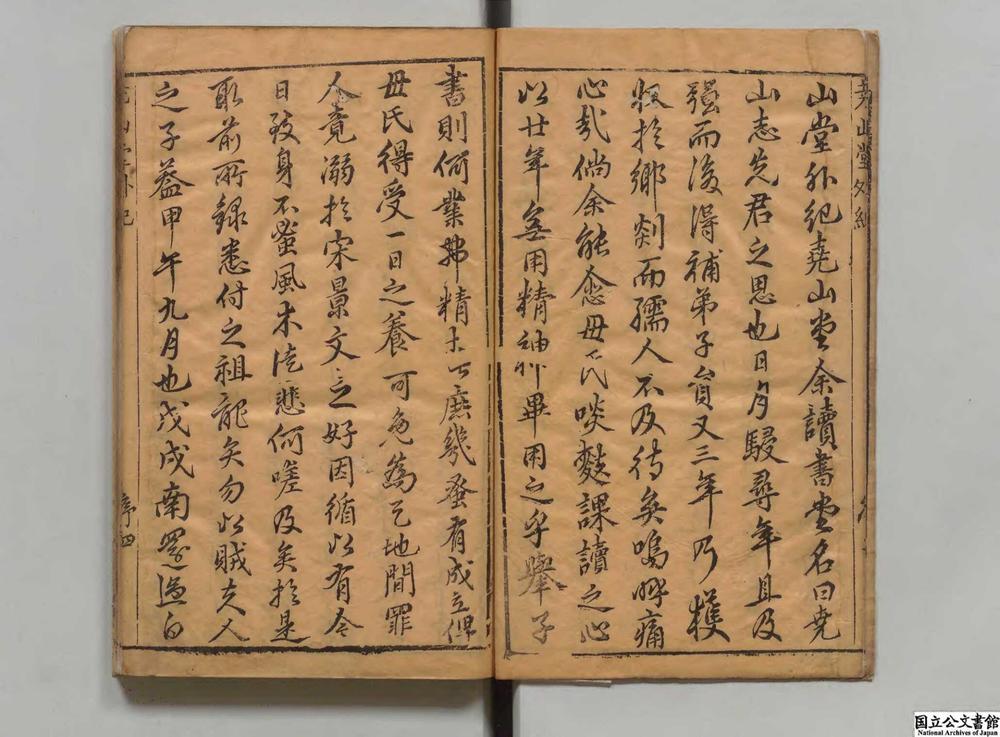 堯山堂外紀
山堂外紀堯山堂余讀書堂名曰堯
山志先君之思也日月駸尋年且及
強而後得補弟子員又三年乃獲
收於鄉剡而孺人不及待矣嗚呼痛
心哉倘余能念母氏啖麨課讀之心
以廿年無用精神畢用之乎舉子
書則何業弗精亦庶幾蚤有成立俾
母氏得受一日之養可免為天地間罪
人竟溺於宋景文之好因循以有今
日致身不蚤風木徒悲何嗟及矣於是
取前所錄悉付之祖龍矣勿以賊夫人
之子蓋甲午九月也戊戌南還過白
堯山堂外紀
序四
国立公文書館
National Archives of Japan